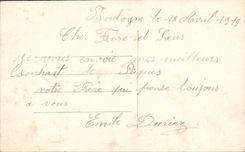 Boulogne le 18 Avril 1919
Cher Frère et Sœur
Je vous envoie mes meilleurs
souhait de Pâques
votre Frère qui pense toujours
à vous
Emile Duriez